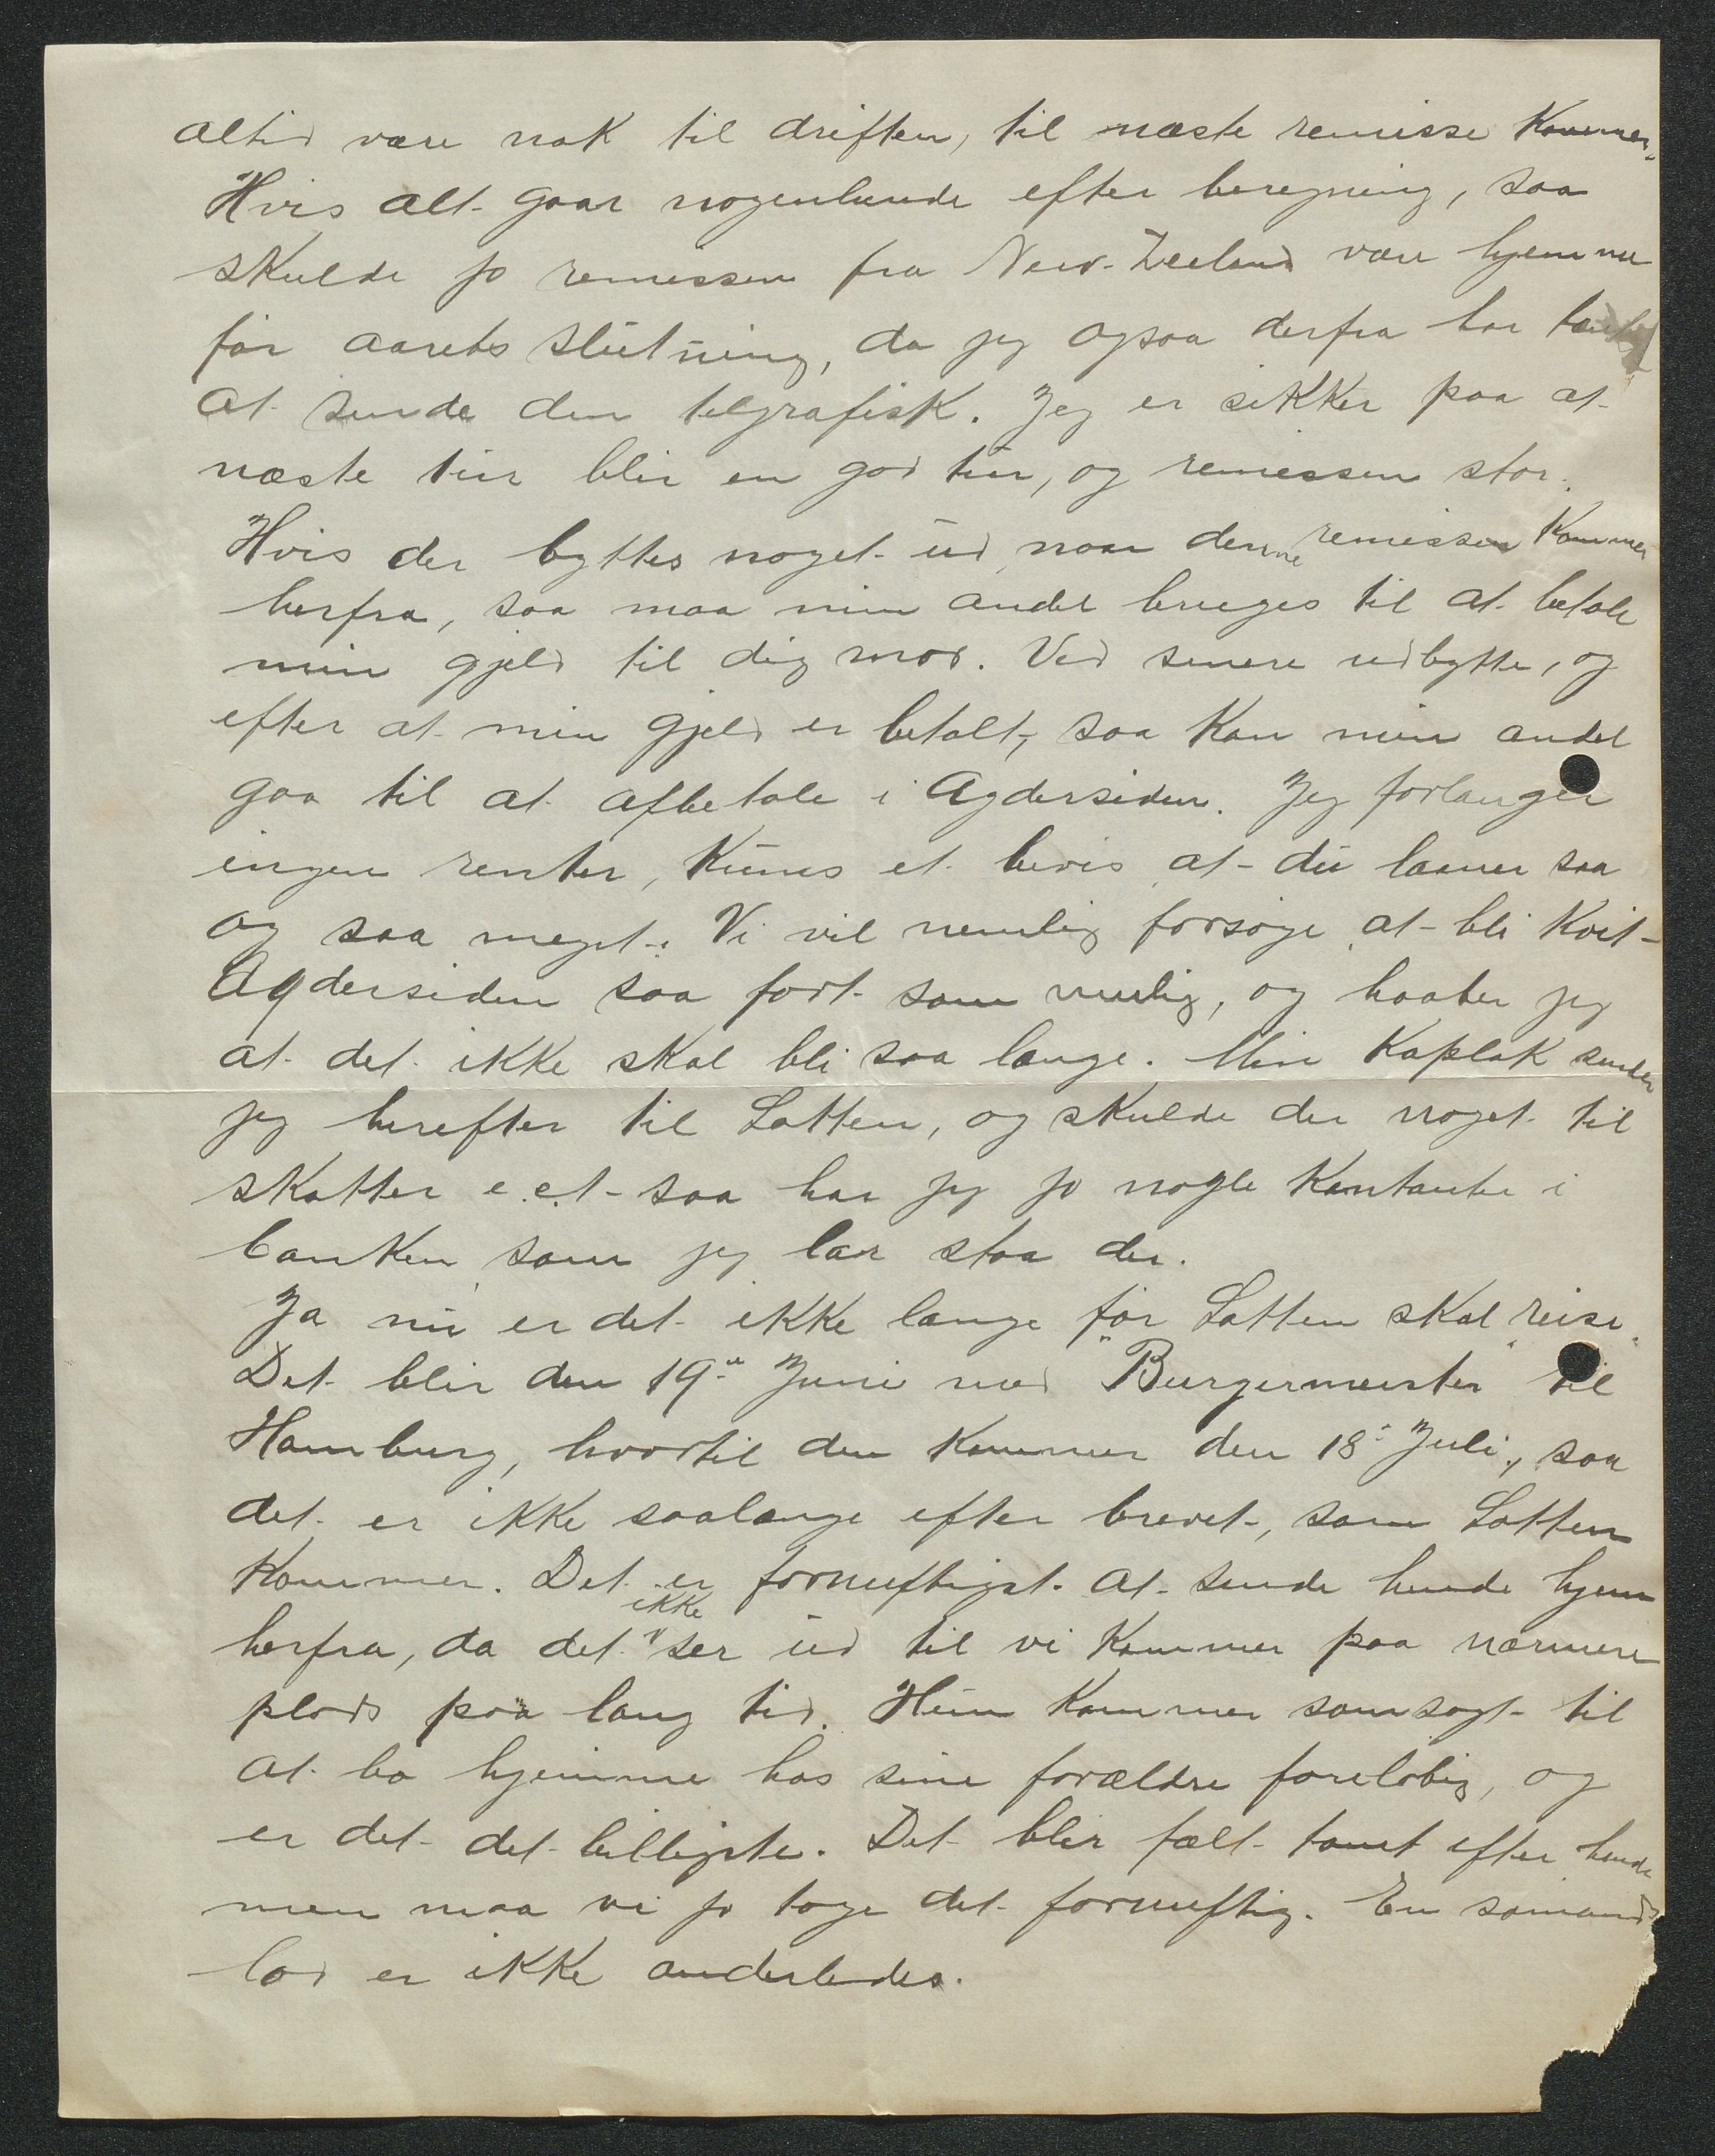 altid være nok til driften, til næste remisse kommer.
Hvis alt gaar nogenlunde efter beregning, saa
skulde jo remissen fra New-Zeeland være hjemme
før aarets slutning, da jeg ogsaa derfra har tænkt
at sende den telgrafisk. Jeg er sikker paa at
næste tur blir en god tur, og remissen stor.
Hvis der byttes noget ud naar denne remissen kommer
herfra, saa maa min andel bruges til at betale
min gjeld til dig mor. Ved senere udbytte, og
efter at min gjeld er betalt, saa kan min andel
gaa til at afbetale i Agdersiden. Jeg forlanger
ingen renter, kuns et bevis at du laaner saa
og saa meget. Vi vil nemlig forsøge at bli kvit
Agdersiden saa fort som mulig, og haaber jeg
at det ikke skal bli saa længe. Min Kaplak sender
jeg herefter til Lotten, og skulde der noget til
skatter e.c.t saa har jeg jo nogle kontanter i
banken som jeg lar staa der.
Ja nu er det ikke længe før Lotten skal reise.
Det blir den 19de Juni med "Burgermeister" til
Hamburg, hvortil den kommer den 18de Juli, saa
det er ikke saalænge efter brevet, som Lotten
kommer. Det er fornuftigst at sende hende hjem
herfra, da det ikke ser ud til vi kommer paa nærmere
plads paa lang tid. Hun kommer som sagt til
at bo hjemme hos sine forældre foreløbig, og
er det det billigste. Det blir fælt tomt efter hende
men maa vi jo tage det fornuftig. En sømands
lod er ikke anderledes.